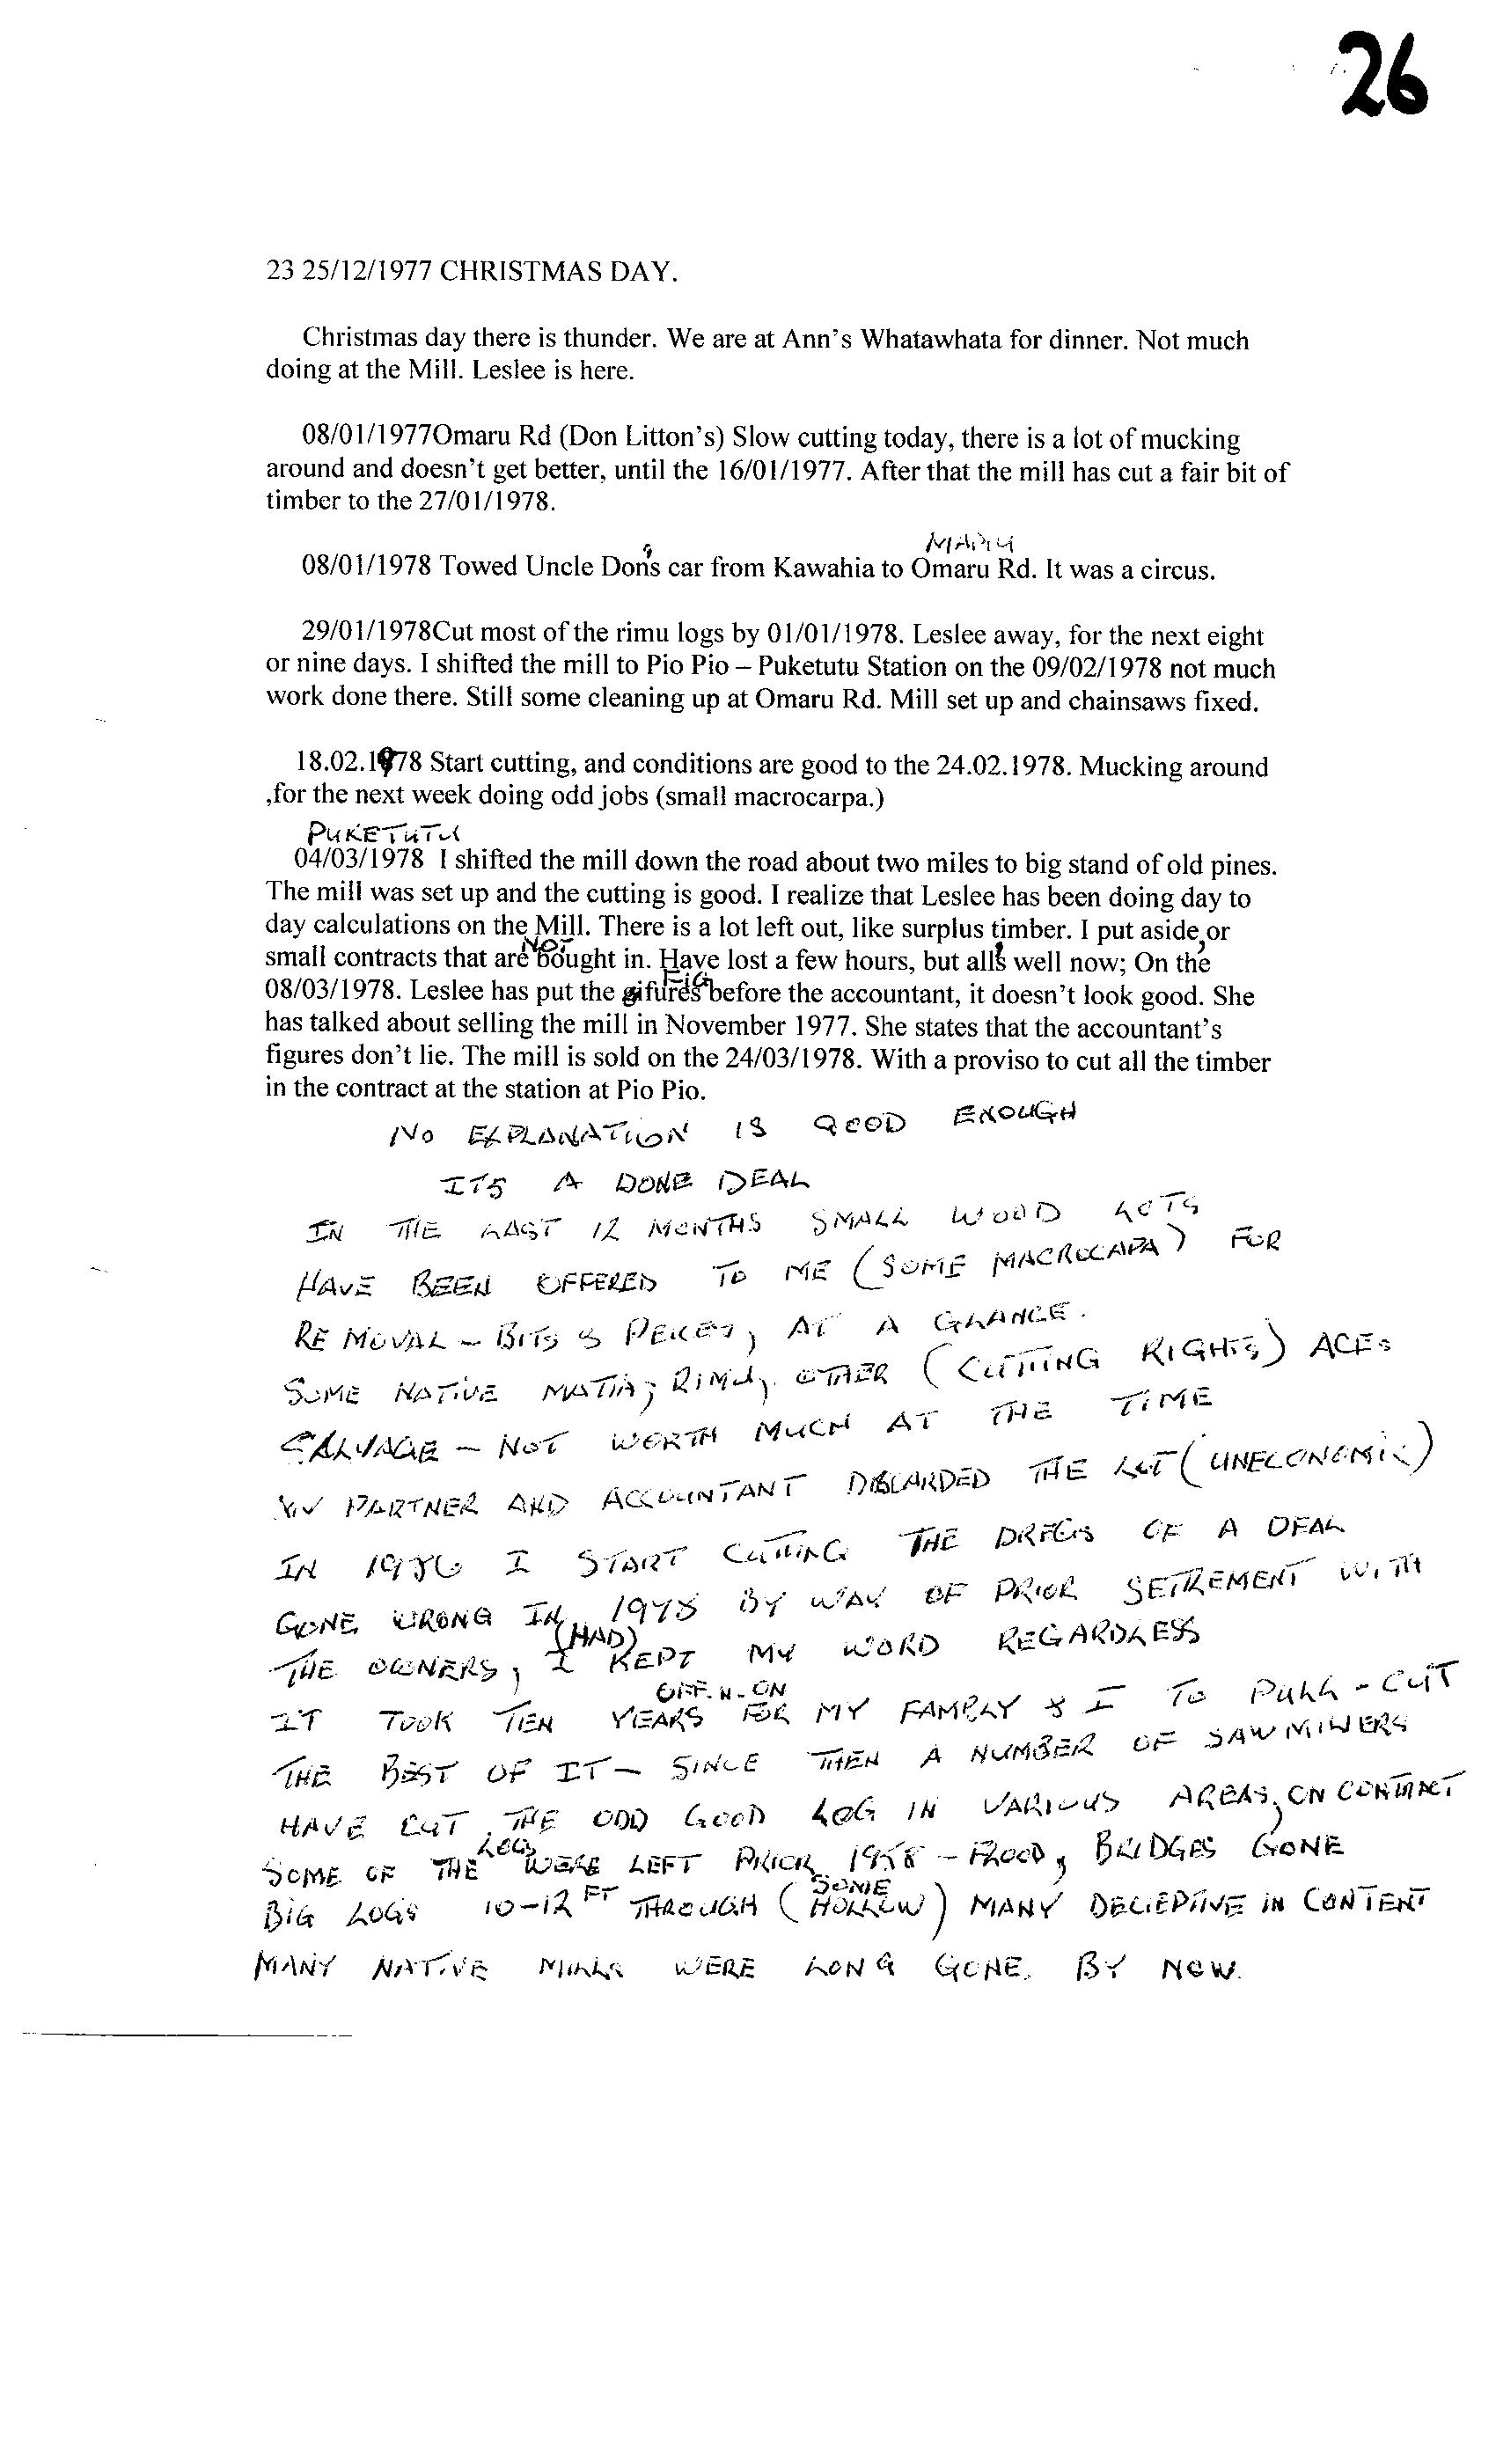 26
23 25/12/1977 CHRISTMAS DAY.
Christmas day there is thunder. We are at Ann's Whatawhata for dinner. Not much
doing at the Mill. Leslee is here.
08/01/1977Omaru Rd (Don Litton's) Slow cutting today, there is a lot of mucking
around and doesn't get better, until the 16/01/1977. After that the mill has cut a fair bit of
timber to the 27/01/1978.
08/01/1978 Towed Uncle Don's car from Kawahia to Omaru Rd. It was a circus.
29/01/1978Cut most of the rimu logs by 01/01/1978. Leslee away, for the next eight
or nine days. I shifted the mill to Pio Pio – Puketutu Station on the 09/02/1978 not much
work done there. Still some cleaning up at Omaru Rd. Mill set up and chainsaws fixed.
18.02.1978 Start cutting, and conditions are good to the 24.02.1978. Mucking around
,for the next week doing odd jobs (small macrocarpa.)
PUKETUTU
04/03/1978 I shifted the mill down the road about two miles to big stand of old pines.
The mill was set up and the cutting is good. I realize that Leslee has been doing day to
day calculations on the Mill. There is a lot left out, like surplus timber. I put aside, or
NOT
small contracts that are bought in. Have lost a few hours, but all's well now; On the
FIG
08/03/1978. Leslee has put the gifures before the accountant, it doesn't look good. She
has talked about selling the mill in November 1977. She states that the accountant's
figures don't lie. The mill is sold on the 24/03/1978. With a proviso to cut all the timber
in the contract at the station at Pio Pio.
NO EXPLANATION IS GOOD ENOUGH
ITS A DONE DEAL
IN THE LAST 12 MONTHS SMALL WOOD LOTS
HAVE BEEN OFFERED TO ME (SOME MACROCAPA) FOR
REMOVAL – BITS & PEICES, AT A GLANCE.
SOME NATIVE MATIA, RIMU, OTHER (CUTTING RIGHTS) ACES
SALVAGE – NOT WORTH MUCH AT THE TIME
PARTNER AND ACCOUNTANT DISCARDED THE LOT (UNECONOMIC)
IN 1986 I START CUTTING THE DREGS OF A DEAL
GONE WRONG IN 1978 BY WAY OF PRIOR SETTLEMENT WITH
(HAD)
THE OWNERS, I KEPT MY WORD REGARDLESS
OFF-N-ON
IT TOOK TEN YEARS FOR MY FAMILY & I TO PULL – CUT
THE BEST OF IT – SINCE THEN A NUMBER OF SAWMILLERS
HAVE CUT THE ODD GOOD LOG IN VARIOUS AREAS, ON CONTRACT
LOGS
SOME OF THE WERE LEFT PRIOR 1958 – FLOOD, BRIDGES GONE
SOME
BIG LOGS 10–12 FT THROUGH (HOLLOW) MANY DECIEPTIVE IN CONTENT
MANY NATIVE MILLS WERE LONG GONE. BY NOW.